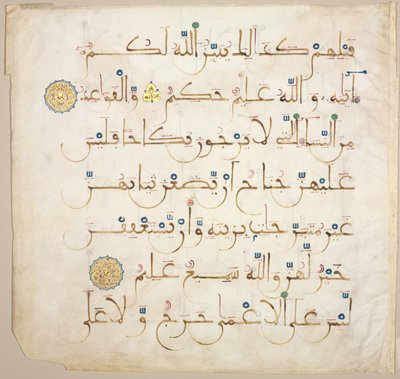 قَبْلِهِمْ كَذَٰلِكَ يُبَيِّنُ اللَّهُ لَكُمُ
ءَايَٰتِهِ وَاللَّهُ عَلِيمٌ حَكِيمٌ وَالْقَوَٰعِدُ
مِنَ النِّسَاءِ الَّٰتِي لَا يَرْجُونَ نِكَاحًا فَلَيْسَ
عَلَيْهِنَّ جُنَاحٌ أَنْ يَضَعْنَ ثِيَابَهُنَّ
غَيْرَ مُتَبَرِّجَٰتٍ بِزِينَةٍ وَأَنْ يَسْتَعْفِفْنَ
خَيْرٌ لَهُنَّ وَاللَّهُ سَمِيعٌ عَلِيمٌ
لَيْسَ عَلَى الْأَعْمَىٰ حَرَجٌ وَلَا عَلَى